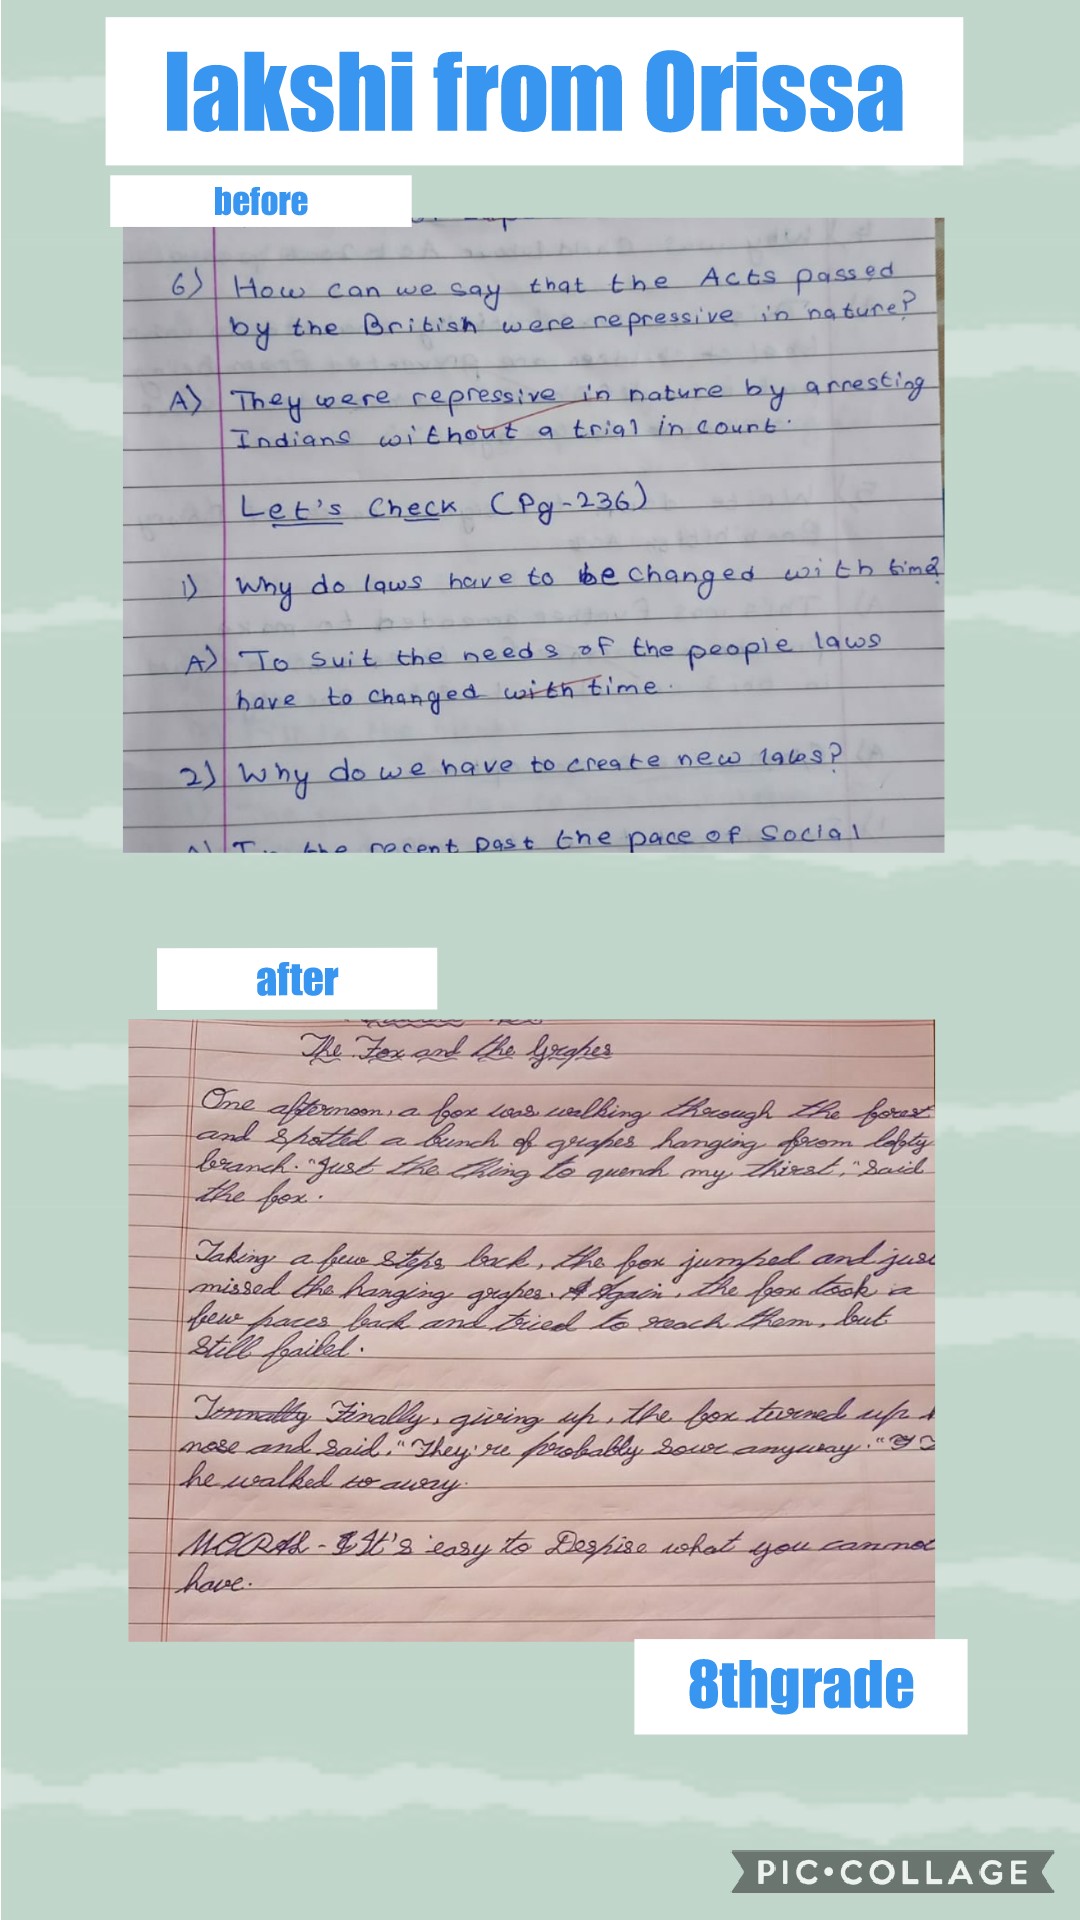 lakshi from Orissa
before
6) How can we say that the Acts passed
by the British were repressive in nature?
A) They were repressive in nature by arresting
Indians without a trial in court.
Let's Check (Pg-236)
1) Why do laws have to be changed with time?
A) To suit the needs of the people laws
have to changed with time.
2) Why do we have to create new laws?
the recent past the pace of social
after
The Fox and the Grapes
One afternoon, a fox was walking through the forest
and spotted a bunch of grapes hanging from lofty
branch. "Just the thing to quench my thirst," Said
the fox.
Taking a few steps back, the fox jumped and jus
missed the hanging grapes. Again, the fox took a
few paces back and tried to reach them, but
still failed.
Finally, giving up, the fox turned up
nose and said, "They're probably sour anyway."
he walked away.
MORAL - It's easy to Despise what you canno
have.
8thgrade
PIC•COLLAGE